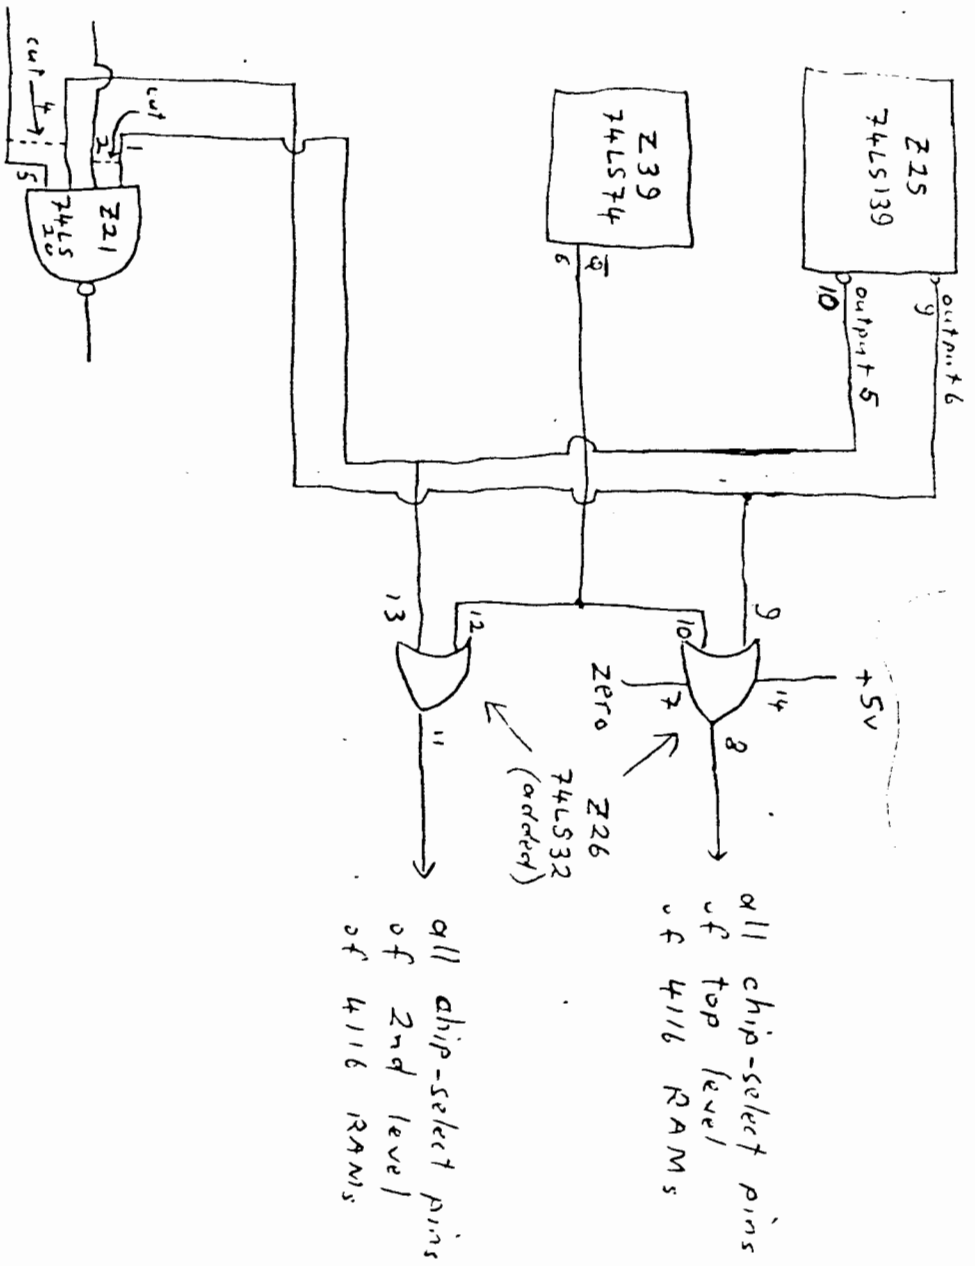 Z25
74LS139
9
output 6
10
output 5
Z39
74LS74
Q
6
cut
1
2
cut
4
5
Z21
74LS
20
9
10
+5v
14
7
zero
8
12
13
11
Z26
74LS32
(added)
all chip-select pins
of top level
of 4116 RAMs
all chip-select pins
of 2nd level
of 4116 RAMs